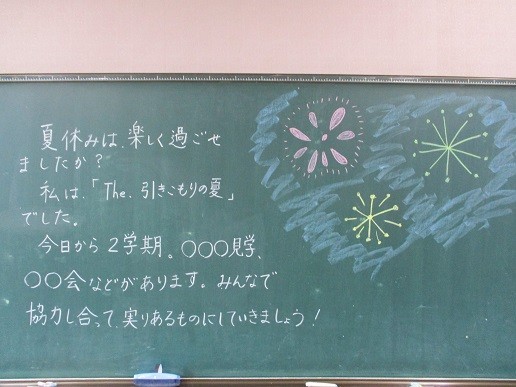 夏休みは、楽しく過ごせ
ましたか?
私は、「The. 引きこもりの夏」
でした。
今日から2学期。○○○見学、
○○会などがあります。みんなで
協力し合って、実りあるものにしていきましょう!